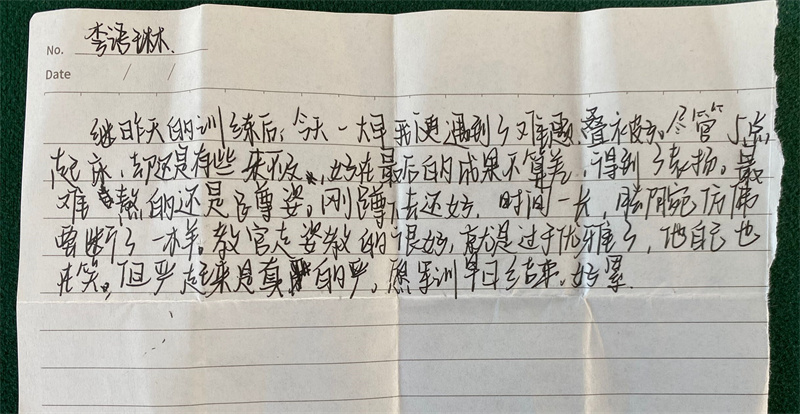 No. 李语琳.
Date / /
继昨天的训练后,今天一大早我便遇到了难题,叠被子。尽管5点
起床,却还是有些来不及,好在最后的成果不算差,得到了表扬。最
难熬的还是蹲姿。刚蹲下去还好,时间一长,脚腕仿佛
要断了一样。教官走姿教的很好,就是过于优雅了,他自己也
在笑。但严起来是真的严。愿军训早日结束,好累.